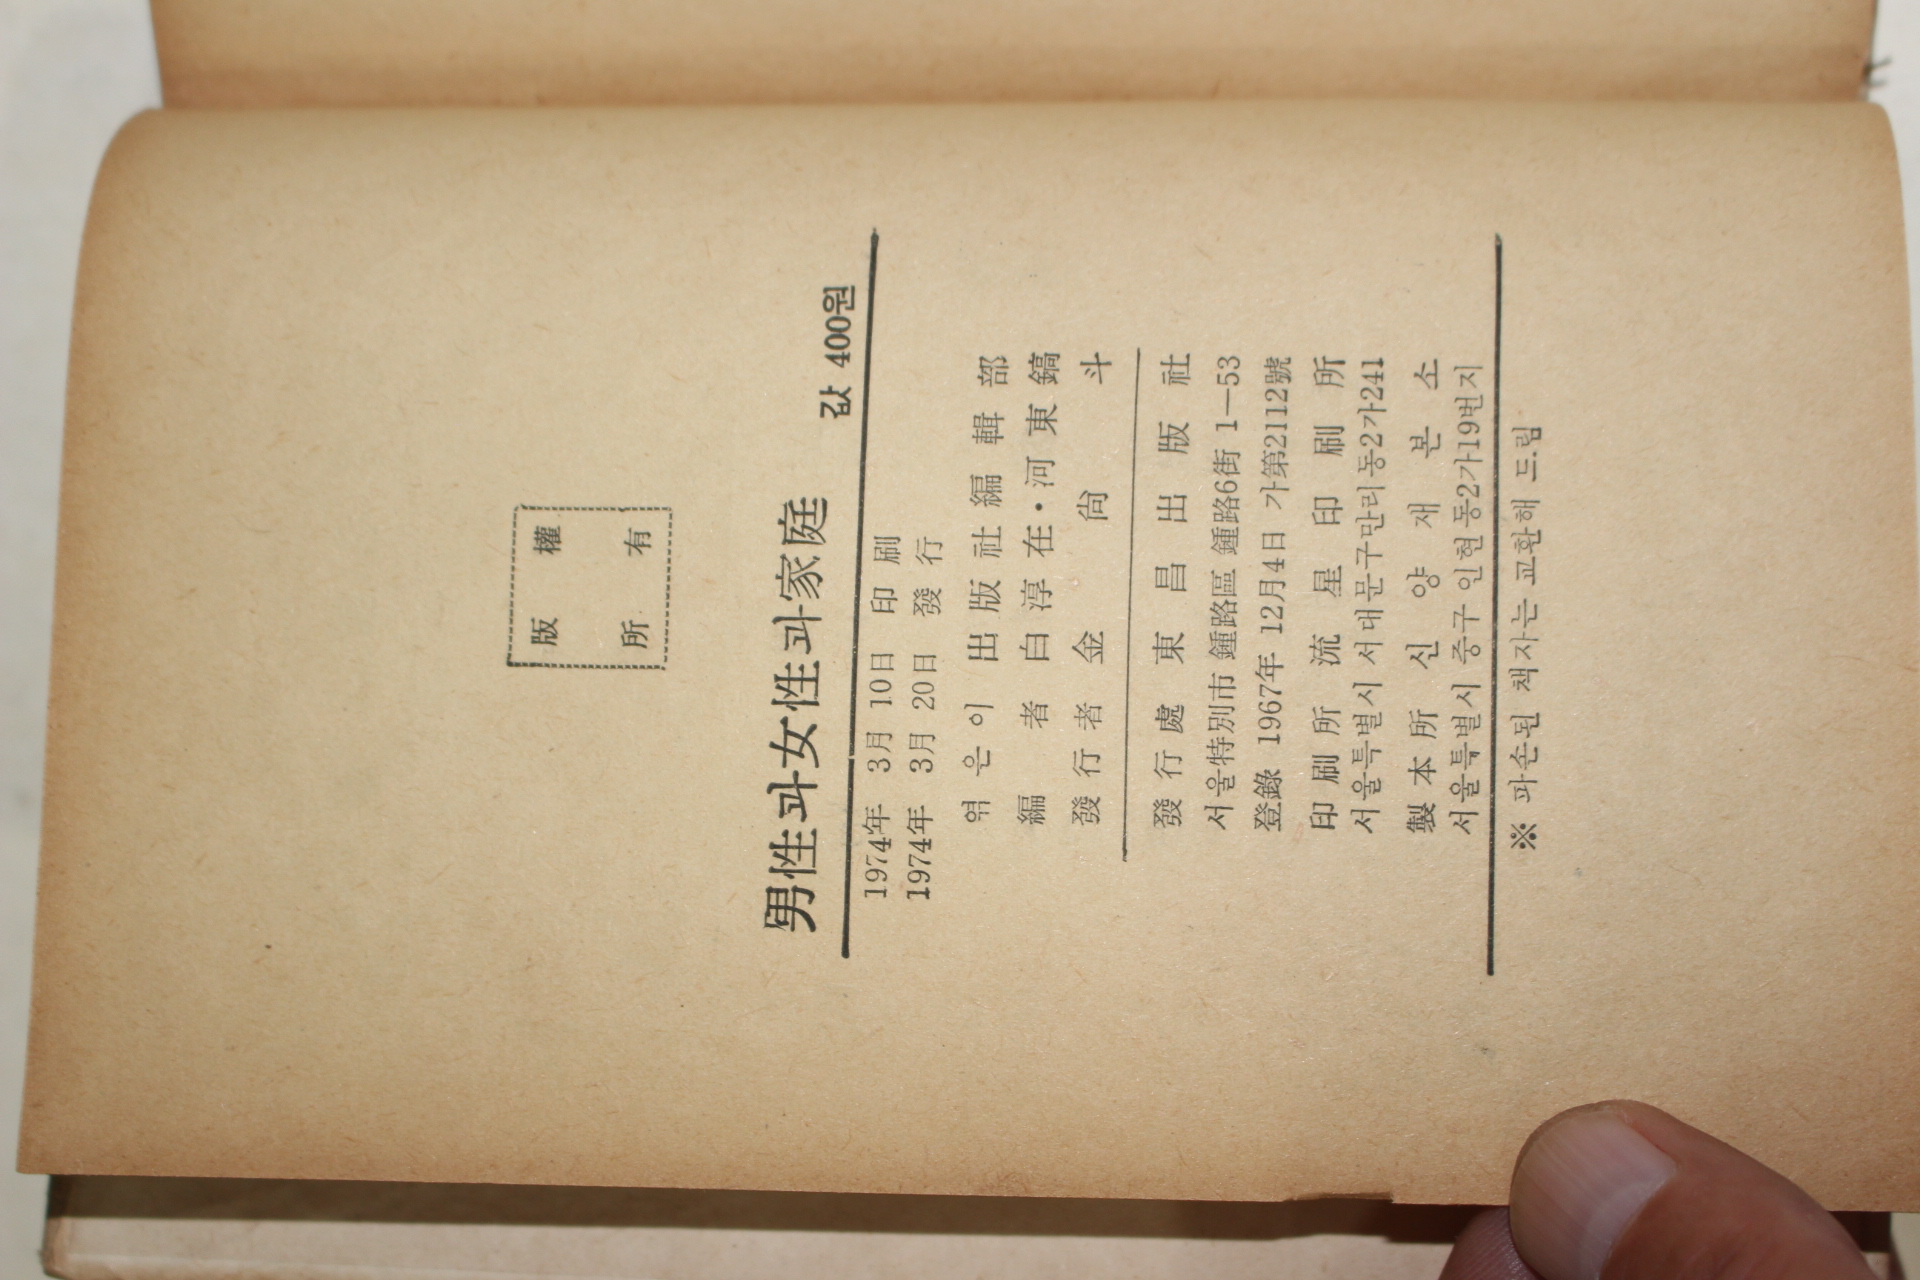 版權
所有
男性과女性과家庭 값 400원
1974年 3月 10日 印刷
1974年 3月 20日 發行
엮은이 出版社編輯部
編者 白淳在·河東鎬
發行者 金尙斗
發行處 東昌出版社
서울特別市 鍾路區 鍾路6街 1—53
登錄 1967年 12月4日 가第2112號
印刷所 流星印刷所
서울특별시 서대문구만리동2가241
製本所 신양재본소
서울특별시 중구 인현동2가19번지
※ 파손된 책자는 교환해 드림